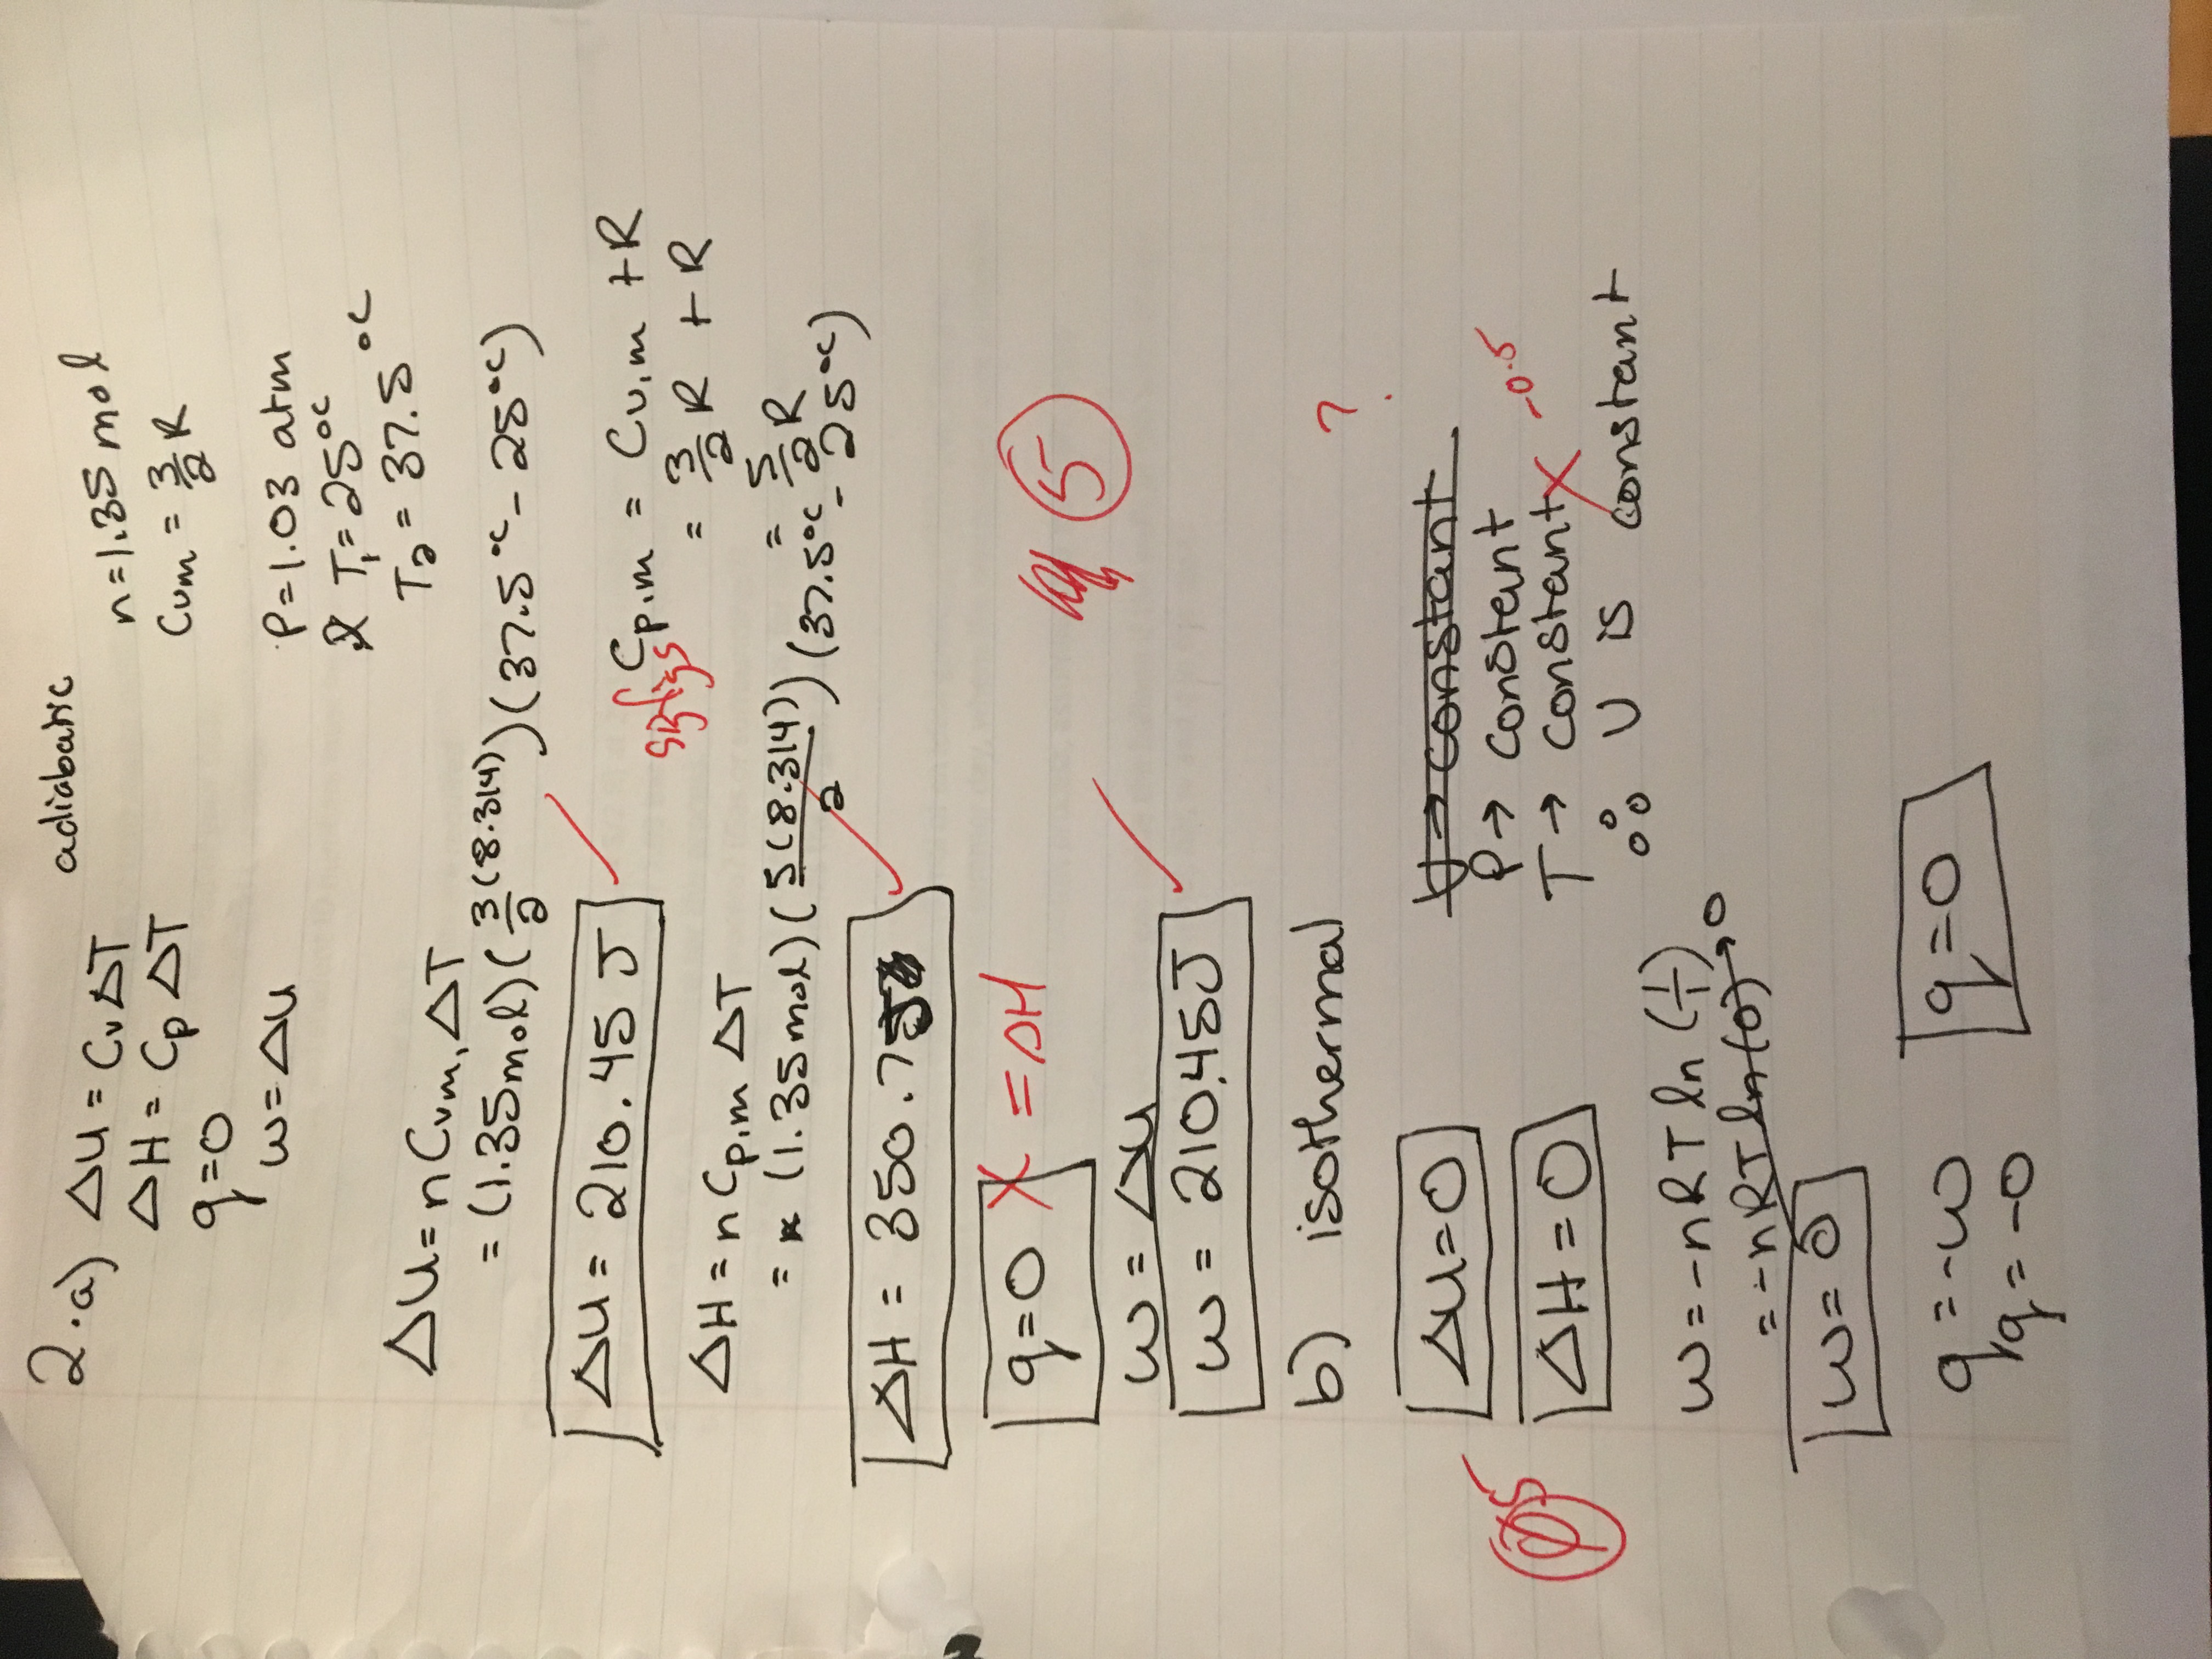 2.a) ΔU = Cv ΔT adiabatic
ΔH = Cp ΔT
q=0
w = Δu
n=1.35 mol
Cvm = 3/2 R
P=1.03 atm
T₁=25°C
T₂ = 37.5 °C
ΔU = n Cvm, ΔT
= (1.35mol) (3/2 (8.314)) (37.5°C - 25°C)
ΔU = 210.45 J
Cp,m = Cv,m + R
= 3/2 R + R
= 5/2 R
sigfigs
ΔH = n Cp,m ΔT
= (1.35mol) (5(8.314)/2) (37.5°C - 25°C)
ΔH = 350.7
q=0 X = ΔH
5
w = Δu
w = 210.45J
b) isothermal
?
Δu=0
ΔH=0
V → constant
P → constant
T → constant X -0.5
∴ U is constant
w = -nRT ln (1/1)
= -nRT ln(0) → 0
w=0
q = -w
q = -0
q=0